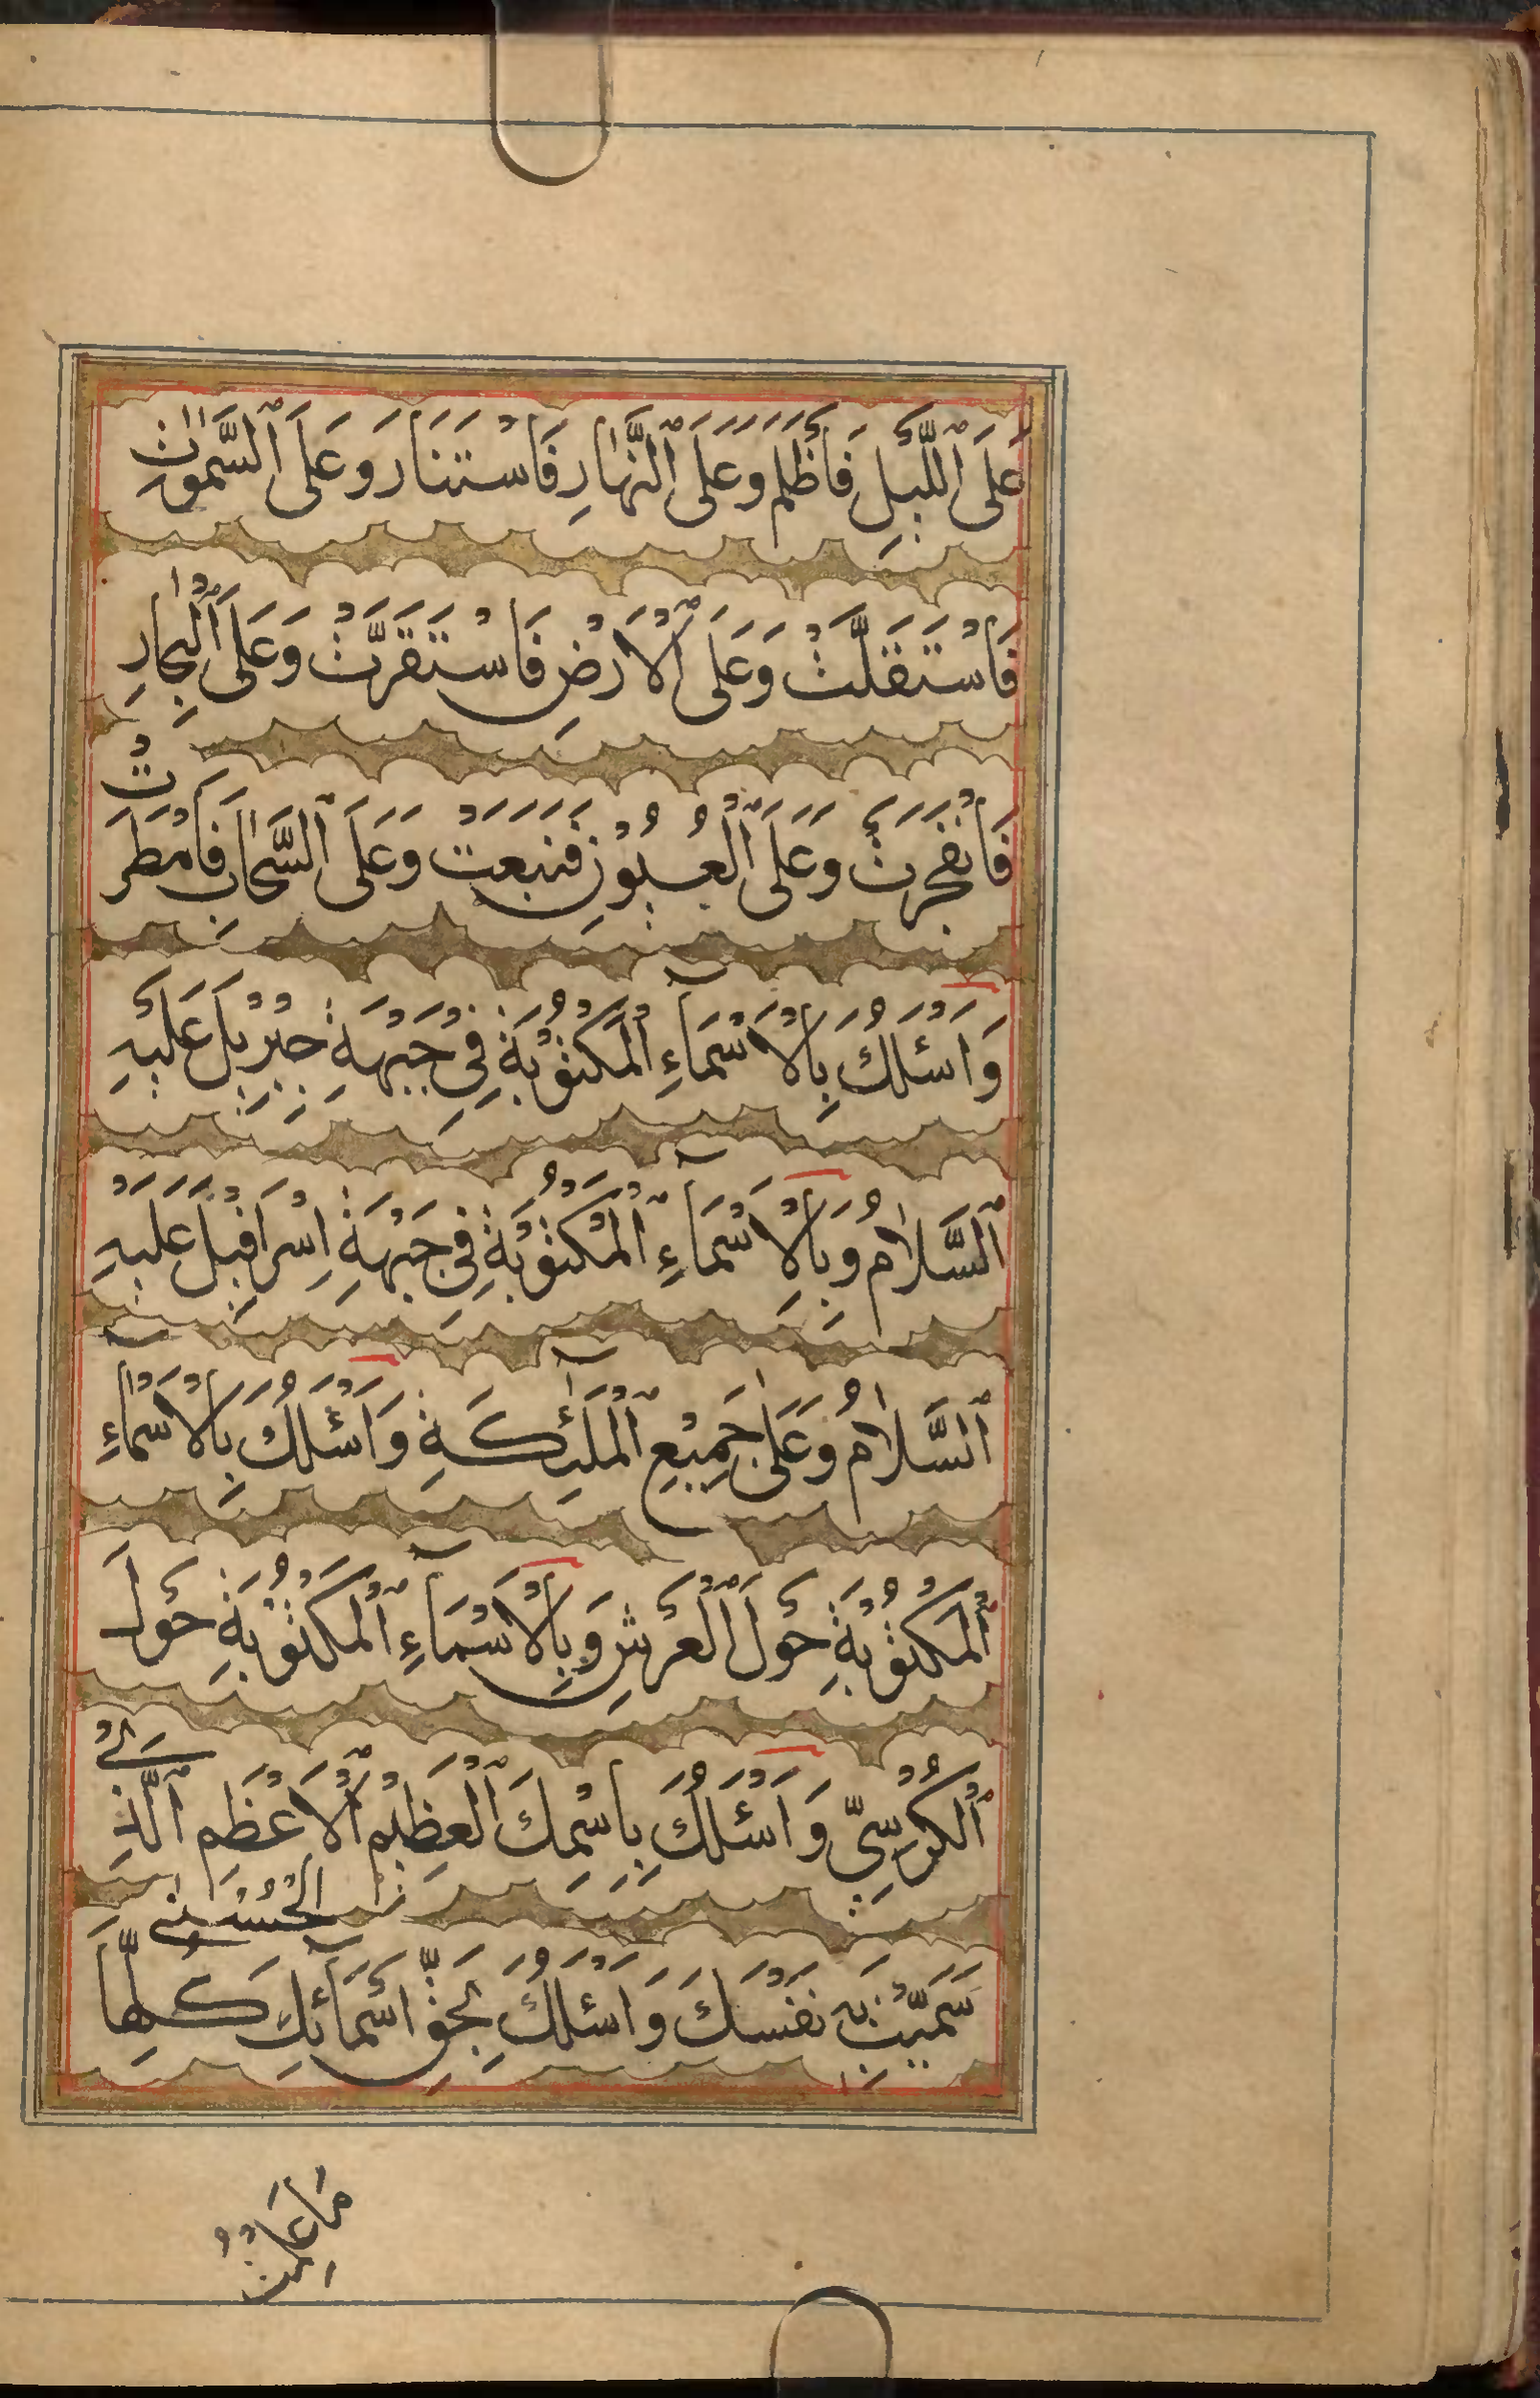 عَلَى ٱللَّيْلِ فَأَظْلَمَ وَعَلَى ٱلنَّهَارِ فَاسْتَنَارَ وَعَلَى ٱلسَّمٰوٰاتِ
فَاسْتَقَلَّتْ وَعَلَى ٱلْاَرْضِ فَاسْتَقَرَّتْ وَعَلَى ٱلْبِحَارِ
فَانْفَجَرَتْ وَعَلَى ٱلْعُيُوْنِ فَنَبَعَتْ وَعَلَى ٱلسَّحَابِ فَاَمْطَرَتْ
وَاَسْئَلُكَ بِالْاَسْمَآءِ ٱلْمَكْتُوْبَةِ فِيْ جَبْهَةِ جِبْرِيْلَ عَلَيْهِ
ٱلسَّلَامُ وَبِالْاَسْمَآءِ ٱلْمَكْتُوْبَةِ فِيْ جَبْهَةِ اِسْرَافِيْلَ عَلَيْهِ
ٱلسَّلَامُ وَعَلَى جَمِيْعِ ٱلْمَلٰٓئِكَةِ وَاَسْئَلُكَ بِالْاَسْمَآءِ
ٱلْمَكْتُوْبَةِ حَوْلَ ٱلْعَرْشِ وَبِالْاَسْمَآءِ ٱلْمَكْتُوْبَةِ حَوْلَ
ٱلْكُرْسِيِّ وَاَسْئَلُكَ بِاسْمِكَ ٱلْعَظِيْمِ ٱلْاَعْظَمِ ٱلَّذِيْ
سَمَّيْتَ بِهِ نَفْسَكَ وَاَسْئَلُكَ بِحَقِّ اَسْمَآئِكَ الْحُسْنٰى كُلِّهَا
مَا عَلِمْتُ